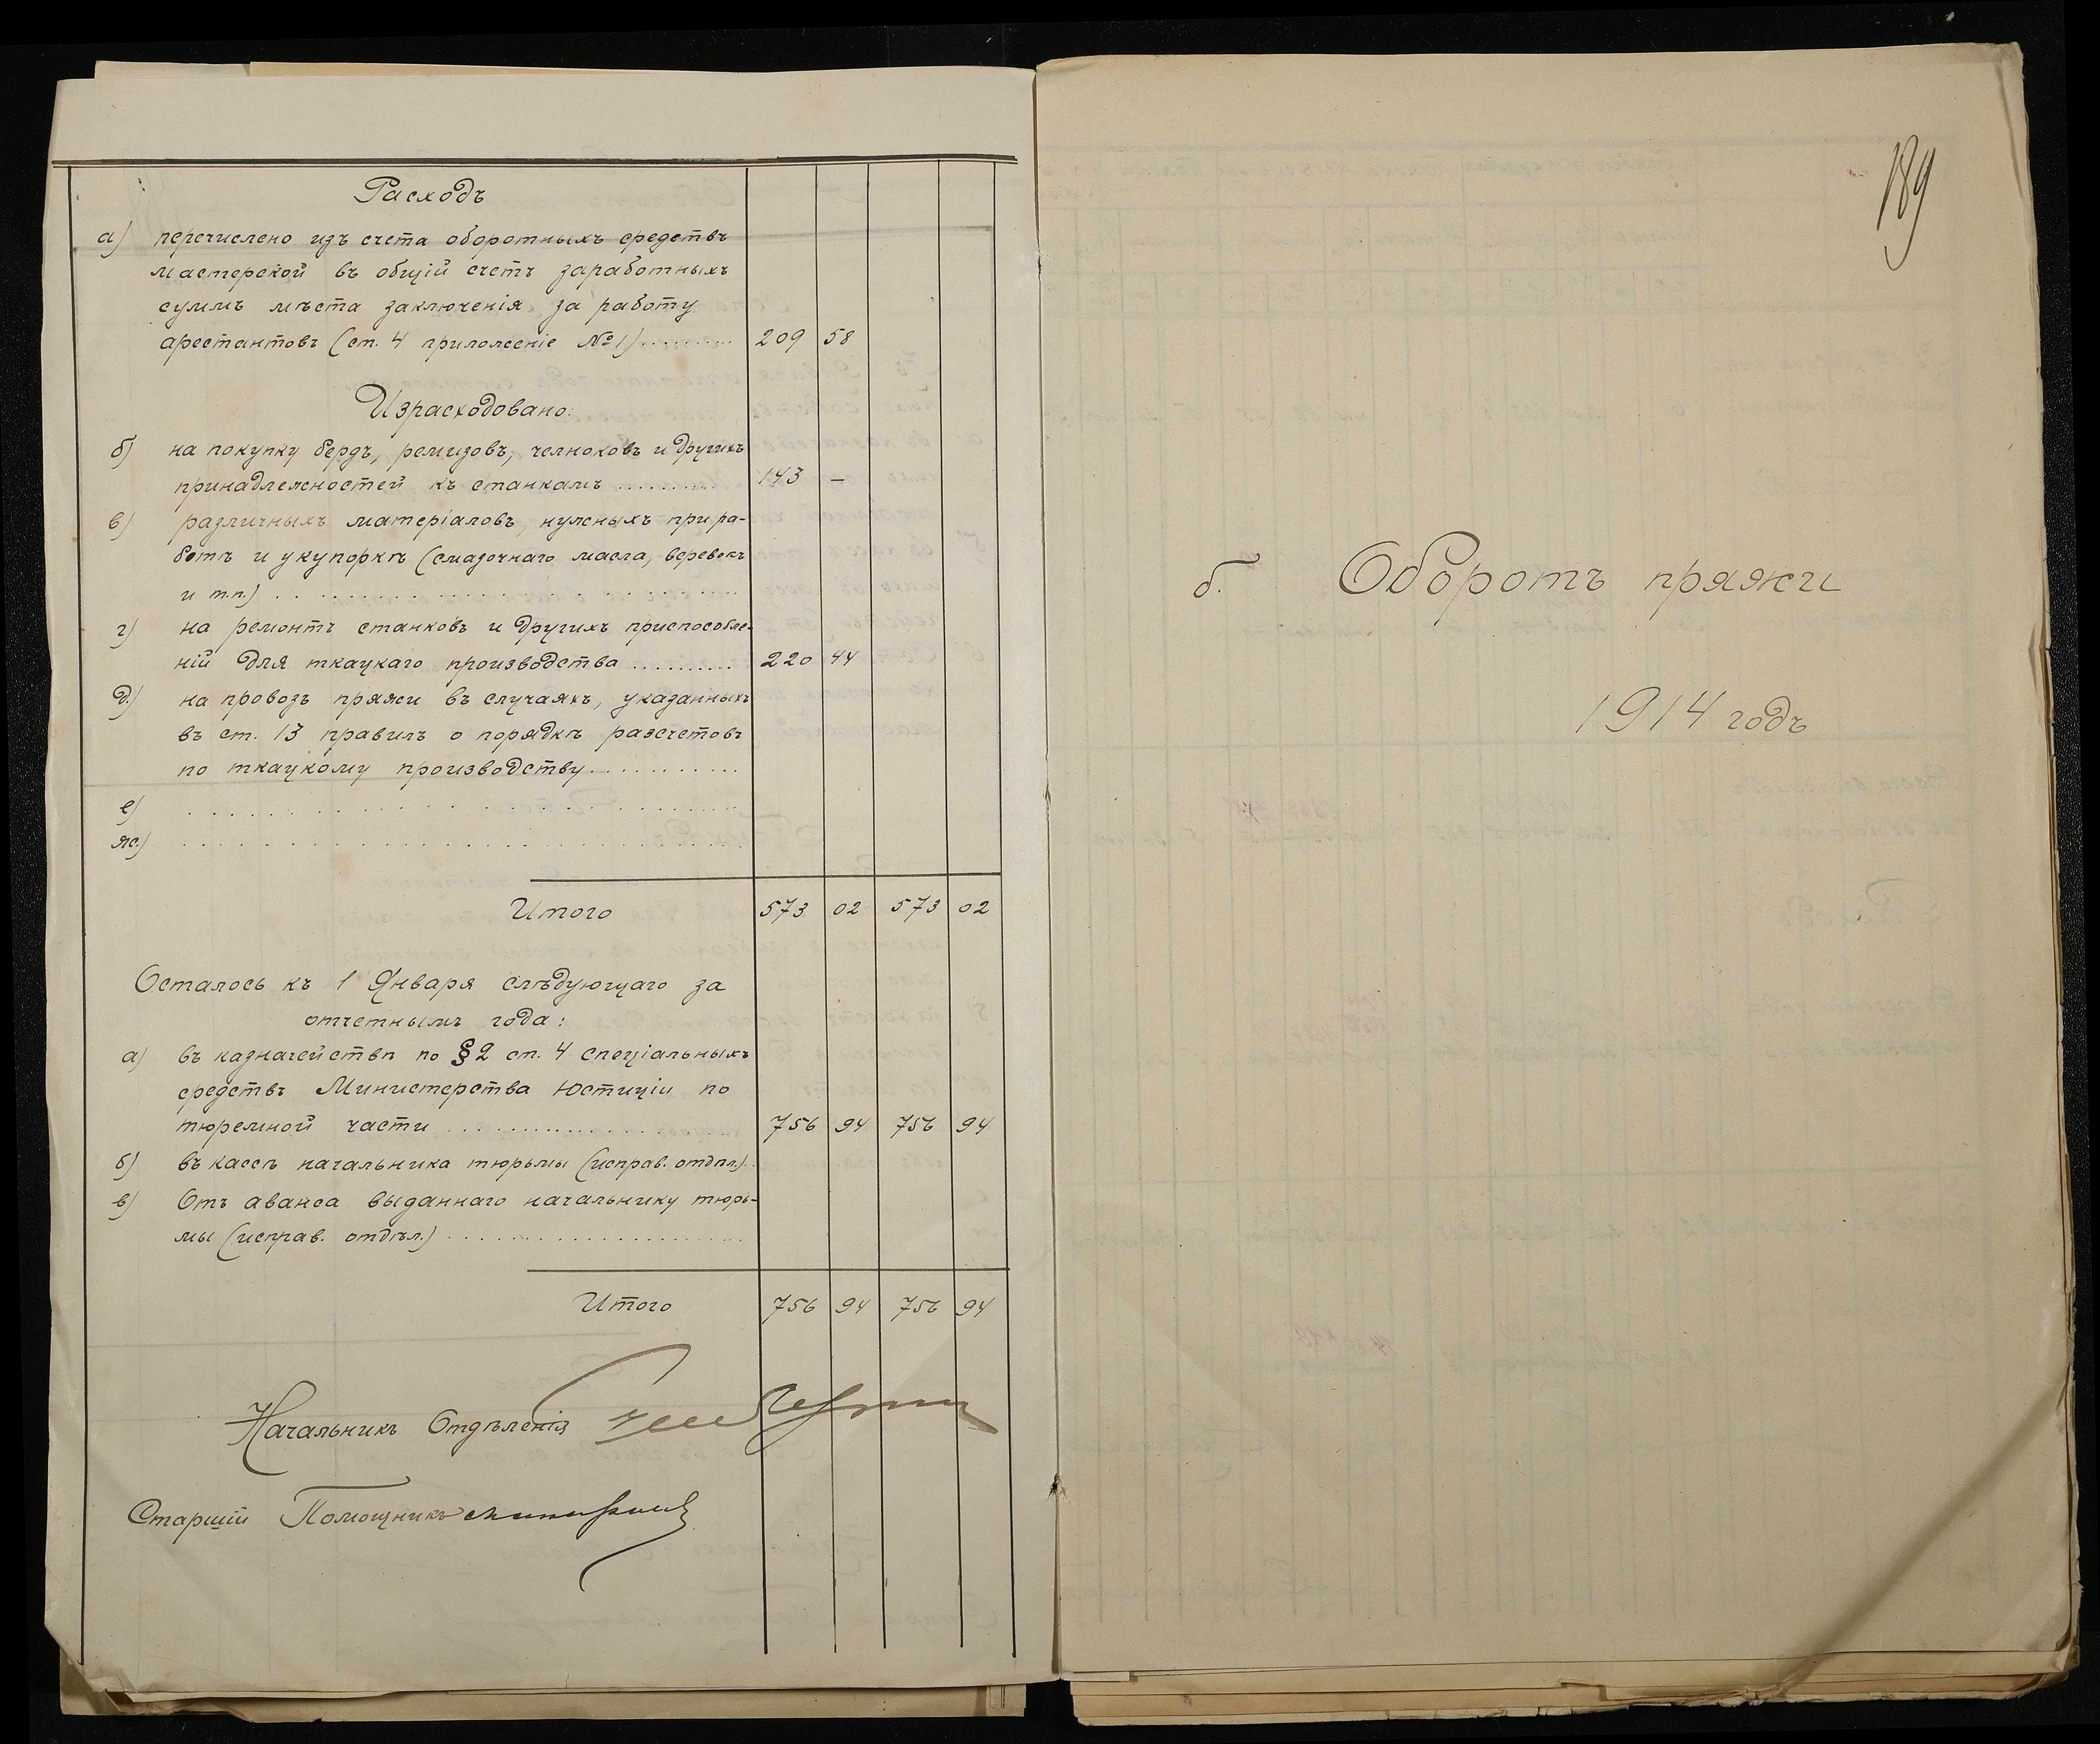 Расходъ
а) перечислено изъ счета оборотныхъ средствъ
мастерской въ общій счетъ заработныхъ
суммъ мѣста заключенія за работу
арестантовъ (ст. 4 приложеніе №1) ......... 209 58
Израсходовано:
б) на покупку бердъ, ремизовъ, челноковъ и другихъ
принадлежностей къ станкамъ .......... 143 —
в) различныхъ матеріаловъ, нужныхъ при ра-
ботѣ и укупоркѣ (смазочнаго масла, веревокъ
и т.п.) ..........
г) на ремонтъ станковъ и другихъ приспособле-
ній для ткацкаго производства .......... 220 44
д) на провозъ пряжи въ случаяхъ, указанныхъ
въ ст. 13 правилъ о порядкѣ разсчетовъ
по ткацкому производству ..........
е) ..........
ж) ..........
Итого 573 02 573 02
Осталось къ 1 Января слѣдующаго за
отчетнымъ года:
а) въ казначействѣ по §2 ст. 4 спеціальныхъ
средствъ Министерства Юстиціи по
тюремной части .......... 756 94 756 94
б) въ кассѣ начальника тюрьмы (исправ. отдѣл.)..
в) Отъ аванса выданнаго начальнику тюрь-
мы (исправ. отдѣл.) ..........
Итого 756 94 756 94
Начальникъ Отдѣленія
Старшій Помощникъ
189
б. Оборотъ пряжи
1914 годъ